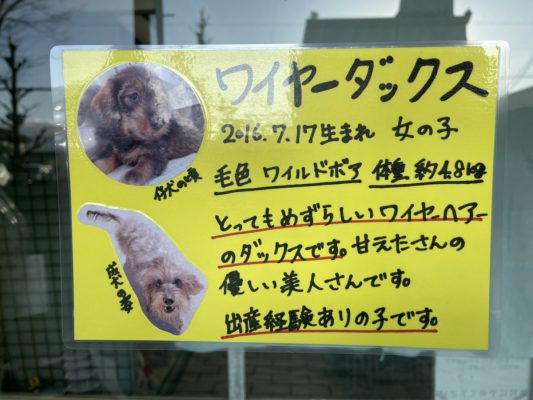 ワイヤーダックス
2016.7.17生まれ 女の子
毛色 ワイルドボア 体重 約4.8kg
仔犬の頃
とってもめずらしいワイヤーヘアー
のダックスです。甘えたさんの
優しい美人さんです。
出産経験ありの子です。
成犬の姿